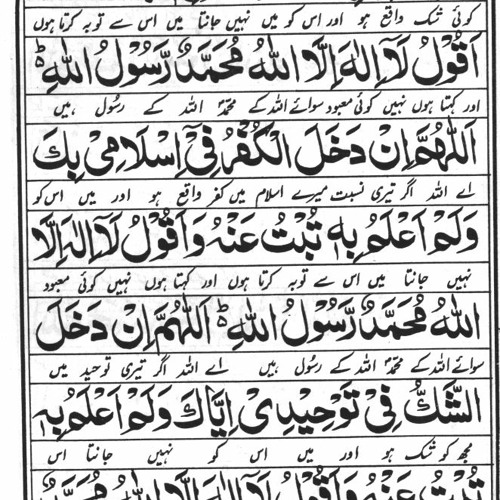 کوئی شک واقع ہو اور اس کو میں نہیں جانتا میں اس سے توبہ کرتا ہوں
اَقُوْلُ لَآ اِلٰهَ اِلَّا اللهُ مُحَمَّدٌ رَّسُوْلُ اللهِ ؕ
اور کہتا ہوں نہیں کوئی معبود سوائے اللہ کے محمدؐ اللہ کے رسول ہیں
اَللّٰهُمَّ اِنْ دَخَلَ الْكُفْرُ فِیْٓ اِسْلَامِیْ بِكَ
اے اللہ اگر تیری نسبت میرے اسلام میں کفر واقع ہو اور میں اس کو
وَلَمْ اَعْلَمْ بِهٖ تُبْتُ عَنْهُ وَ اَقُوْلُ لَآ اِلٰهَ اِلَّا
نہیں جانتا میں اس سے توبہ کرتا ہوں اور کہتا ہوں نہیں کوئی معبود
اللهُ مُحَمَّدٌ رَّسُوْلُ اللهِ ؕ اَللّٰهُمَّ اِنْ دَخَلَ
سوائے اللہ کے محمدؐ اللہ کے رسول ہیں اے اللہ اگر تیری توحید میں
الشَّكُّ فِیْ تَوْحِیْدِیْ اِیَّاكَ وَلَمْ اَعْلَمْ بِهٖ
مجھ کو شک ہو اور میں اس کو نہیں جانتا اس
تُبْتُ عَنْهُ وَ اَقُوْلُ لَآ اِلٰهَ اِلَّا اللهُ مُحَمَّدٌ